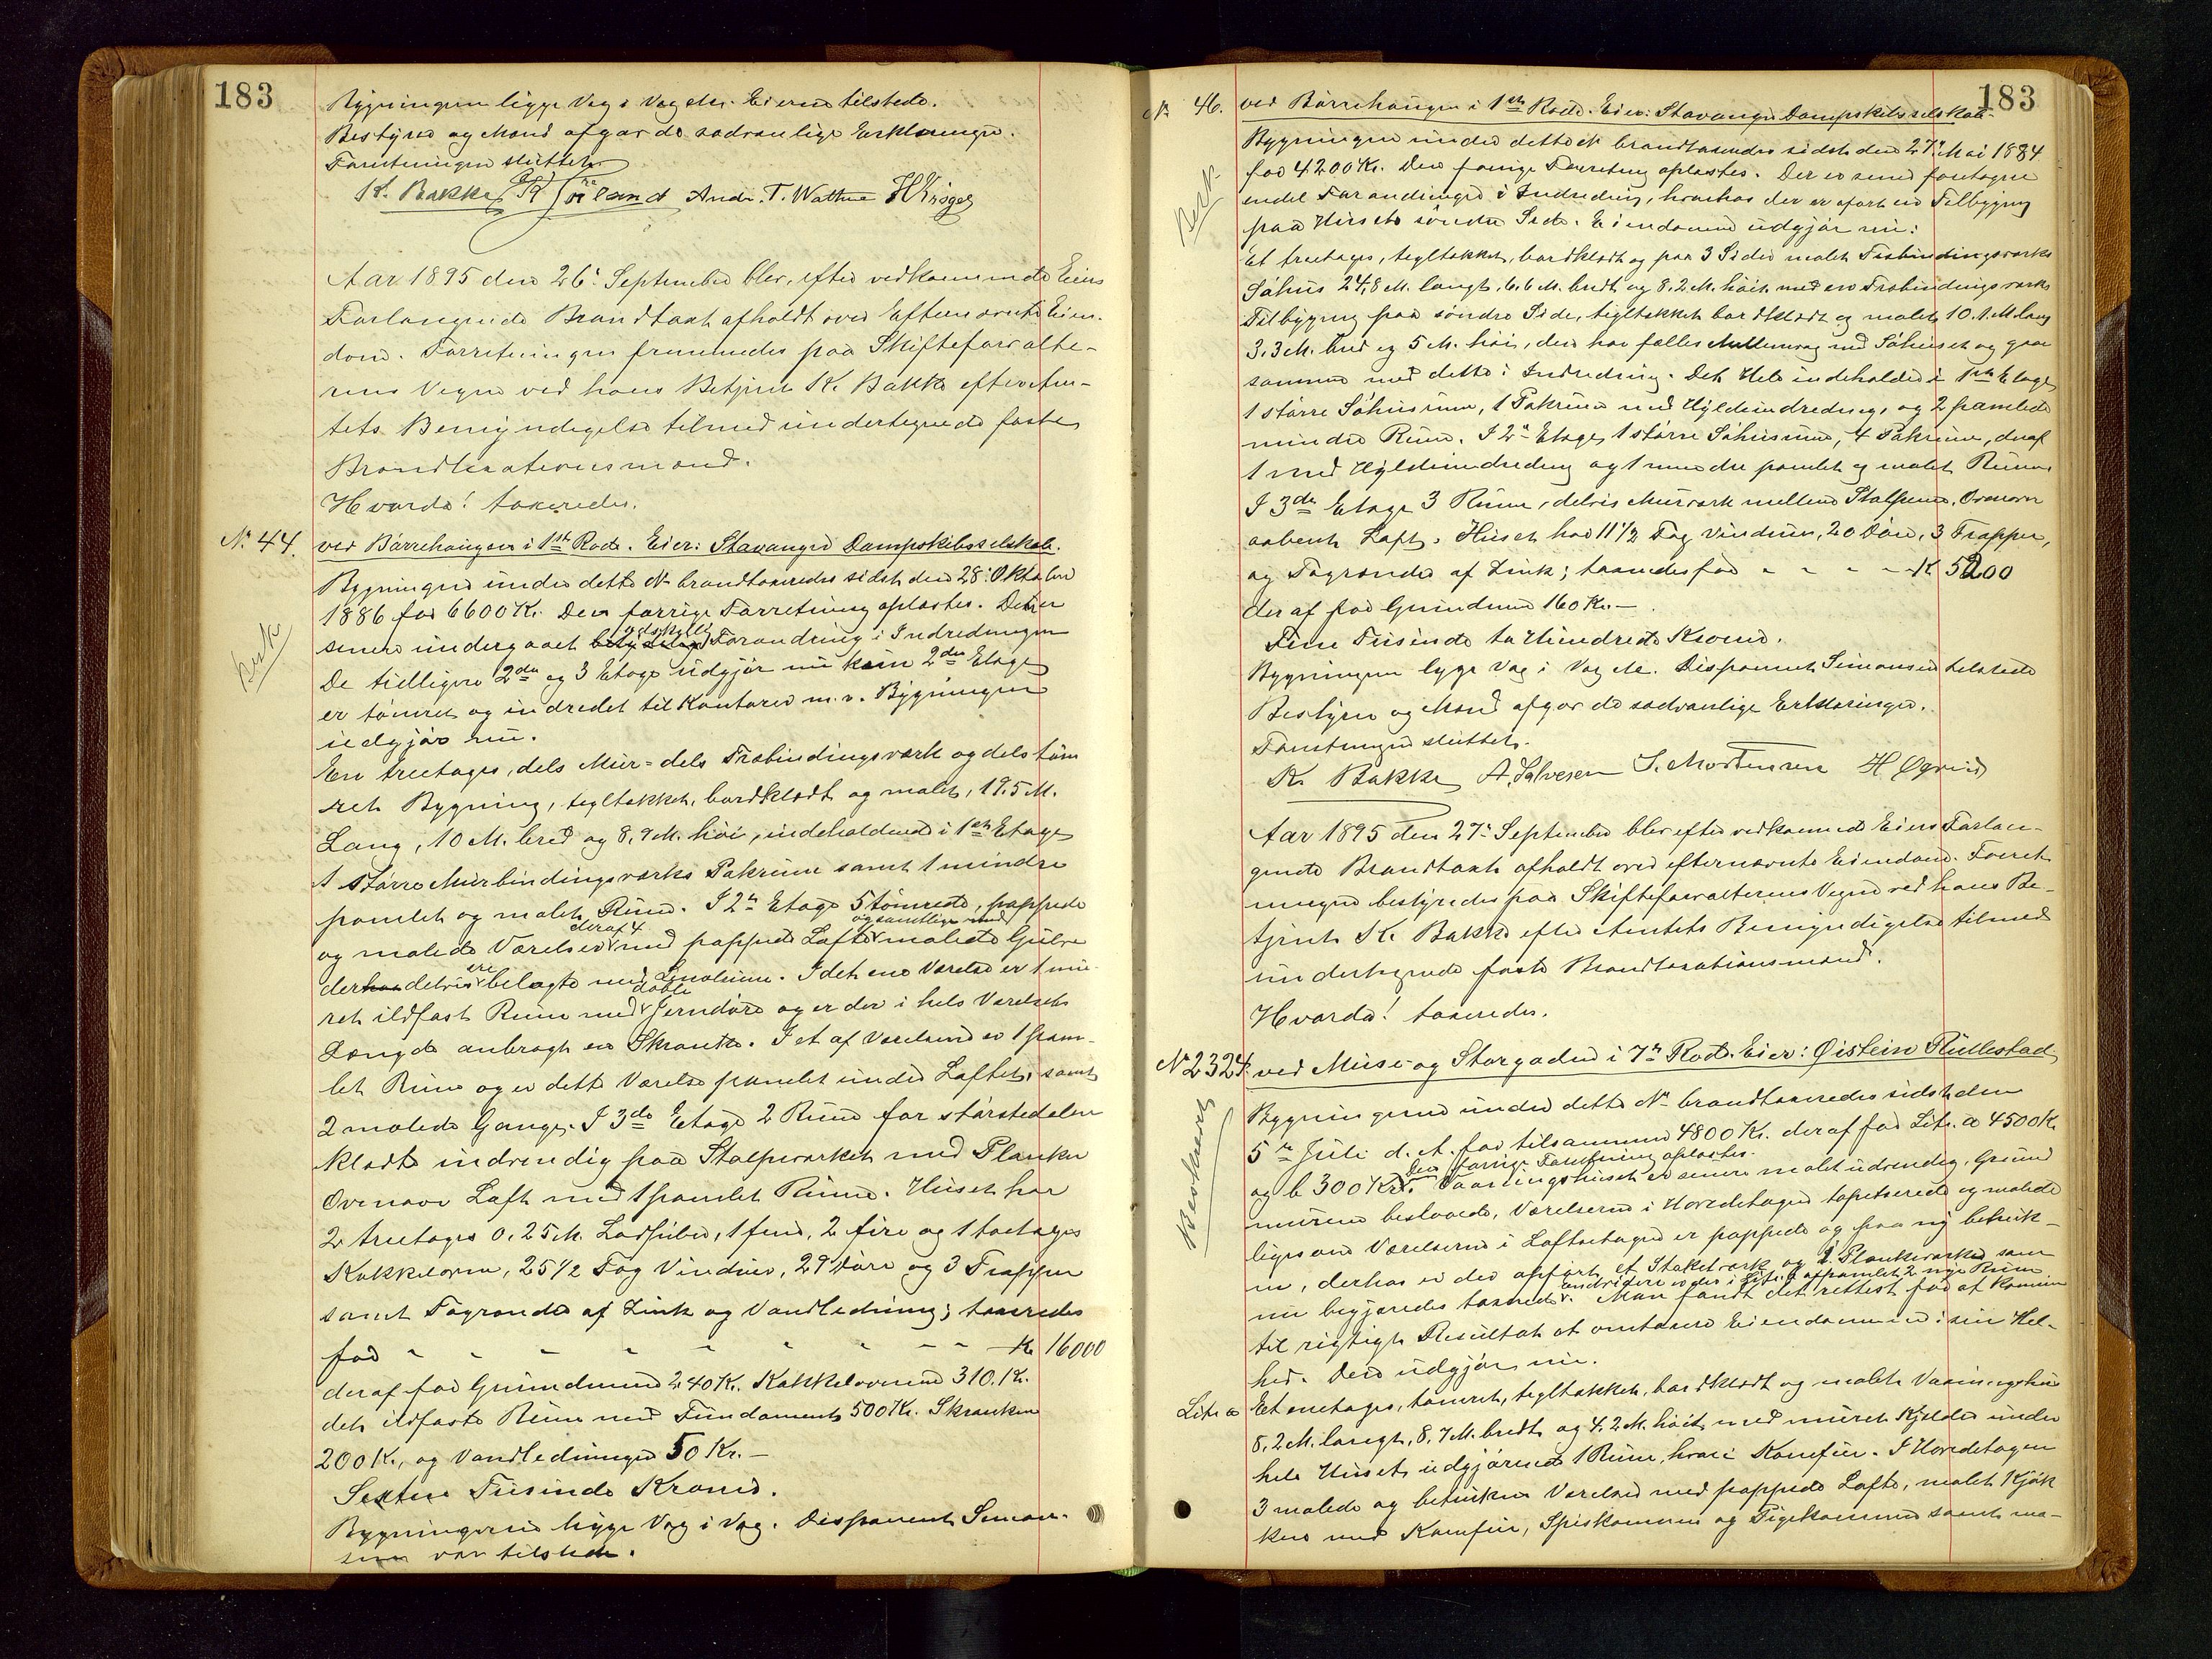 183
Bygningerne ligge Væg i Væg etc. Eieren tilstede.
Bestyrer og Mænd afgav de sædvanlige Erklæringer.
Forretningen sluttet.
K. Bakke Andr. T. Wathne H Krüger
Aar 1895 den 26' September blev, efter vedkommende Eiers
Forlangende Brandtaxt afholdt over Efternævnte Eien-
dom. Forretningen fremmedes paa Skifteforvalte-
rens Vegne ved hans Betjent K. Bakke efter Am-
tets Bemyndigelse tilmed undertegnede faste
Brandtaxationsmænd.
Hvorda! taxeredes.
N. 44. ved Børrehaugen i 1ste Rode. Eier: Stavanger Dampskibsselskab.
Besk.
Bygningen under dette No brandtaxeredes sidst den 28' Oktober
1886 for 6600 Kr. Den forrige Forretning oplæstes. Den er
senere undergaaet Forandring i Indredningen
De tidligere 2den og 3 Etage udgjør nu kun 2den Etage
er tømret og indredet til Kontorer m.v. Bygningen
udgjør nu.
En treetages, dels Mur- dels Træbindingsværk og dels tøm
ret Bygning, tegltækket, bordklædt og malet, 19.5 M.
Lang, 10 M. bred og 8,9 M. høi, indeholdende i 1ste Etage
1 større Murbindingsværks Pakrum samt 1 mindre
panelet og malet Rum. I 2n Etage 5 tømrede, pappede
deraf 4 og samtlige med
og malede Værelser med pappede Lofte malede Gulve
ere
der delvis belagte med Linoleum. I det ene Værelse er 1 mu-
doble
ret ildfast Rum med Jerndøre og er der i hele Værelsets
Længde anbragt en Skranke. I et af Værelserne er 1 pane-
let Rum og er dette Værelse panelet under Loftet, samt
2 malede Gange. I 3de Etage 2 Rum for størstedelen
klædte indvendig paa Stolpeværket med Planker
Ovenover Loft med 1 panelet Rum. Huset har
2 treetages 0.25 M. Lodpiber, 1 fem, 2 fire og 1 toetages
Kakkelovne, 25 1/2 Fag Vinduer, 29 Døre og 3 Trapper
samt Tagrender af Zink og Vandledning; taxeredes
for - - - - - - - - Kr 16000
deraf for Grundmuren 240 Kr. Kakkelovnene 310 Kr.
det ildfaste Rum med Fundament 500 Kr. Skranken
200 Kr., og Vandledningen 50 Kr.-
Sexten Tusinde Kroner.
Bygningerne ligge Væg i Væg. Disponent Simon-
sen var tilstede.
183
No 46. ved Børrehaugen i 1ste Rode. Eier: Stavanger Dampskibsselskab.
Besk.
Bygningen under dette No brandtaxeredes sidst den 27' Mai 1884
for 4200 Kr. Den forrige Forretning oplæstes. Der er senere foretagne
endel Forandringer i Indredning, hvorhos der er opført en Tilbygning
paa Husets søndre Side. Eiendommen udgjør nu:
Et treetages, tegltækket, bordklædt og paa 3 Sider malet Træbindingsværks
Søhus 24,8 M. langt, 6,6 M. bredt og 8,2 M. høit med en Træbindingsværks
Tilbygning paa søndre Side, tegltækket bordklædt og malet 10.1 M. lang
3,3 M. bred og 5 M. høi, der har fælles Mellemvæg med Søhuset og gaar
sammen med dette i Indredning. Det Hele indeholder i 1ste Etage
1 større Søhusrum, 1 Pakrum med Hyldeindredning, og 2 panelede
mindre Rum. I 2n Etage 1 større Søhusrum, 4 Pakrum, deraf
1 med Hyldeindredning og 1 mindre panelet og malet Rum.
I 3de Etage 3 Rum, delvis Murværk mellem Stolperne. Ovenover
aabent Loft. Huset har 11 1/2 Fag Vinduer, 20 Døre, 3 Trapper,
og Tagrender af Zink; taxeredes for - - - - Kr 5200
deraf for Grundmuren 160 Kr.-
Fem Tusinde to Hundrede Kroner.
Bygningerne ligge Væg i Væg etc. Disponent Simonsen tilstede
Bestyrer og Mænd afgav de sædvanlige Erklæringer.
Forretningen sluttet.
K. Bakke A. Salvesen S. Mortensen H. Øgreid
Aar 1895 den 27' September blev efter vedkommende Eiers Forlan-
gende Brandtaxt afholdt over efternævnte Eiendom. Forret-
ningen bestyredes paa Skifteforvalterens Vegne ved hans Be-
tjent K. Bakke efter Amtets Bemyndigelse tilmed
undertegnede faste Brandtaxationsmænd.
Hvorda! taxeredes.
No 2324. ved Muse- og Storgaden i 7n Rode. Eier: Øistein Rullestad
Beskrevet
Bygningerne under dette No brandtaxeredes sidst den
5te Juli d. A. for tilsammen 4800 Kr. deraf for Litr. a 4500 Kr
Den forrige Forretning oplæstes.
og b 300 Kr. Vaaningshuset er senere malet udvendig, Grund
muren beslaaede, Værelserne i Hovedetagen tapetserede og malede
ligesom Værelserne i Loftsetagen er pappede og paa ny betruk-
ne, derhos er der opført et Staketværk og 1 Plankeværk som
endvidere er der i Litr. b afpanelet 2 nye Rum
nu begjæredes taxeret. Man fandt det rettest for at komme
til rigtigt Resultat at omtaxere Eiendommen i sin Hel-
hed. Den udgjør nu.
Litr a Et enetages, tømret, tegltækket, bordklædt og malet Vaaningshus
8,2 M. langt, 8,7 M. bredt og 4,2 M. høit, med muret Kjelder under
hele Huset udgjørende 1 Rum, hvori Komfur. I Hovedetagen
3 malede og betrukne Værelser med pappede Lofte, malet Kjøk
ken med Komfur, Spiskammer og Pigekammer samt ma-